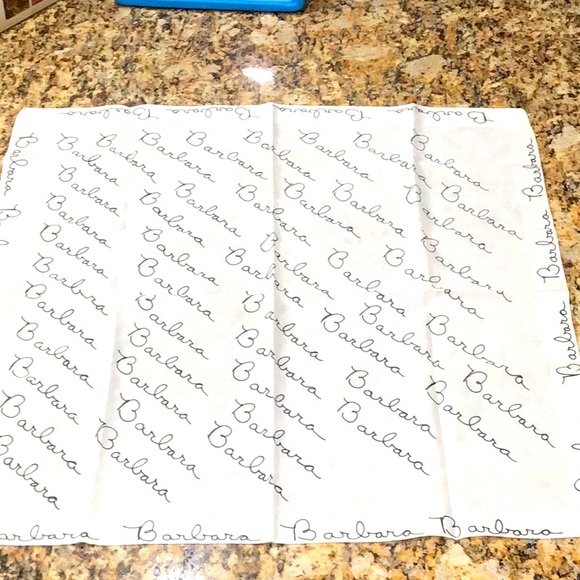 Barbara Barbara Barbara Barbara
Barbara Barbara Barbara Barbara Barbara Barbara
Barbara Barbara Barbara Barbara Barbara Barbara
Barbara Barbara Barbara Barbara Barbara Barbara
Barbara Barbara Barbara Barbara Barbara Barbara
Barbara Barbara Barbara Barbara Barbara
Barbara Barbara Barbara Barbara Barbara
Barbara Barbara Barbara Barbara Barbara
Barbara Barbara Barbara Barbara Barbara
Barbara Barbara Barbara
Barbara Barbara Barbara Barbara
Barbara
Barbara
Barbara